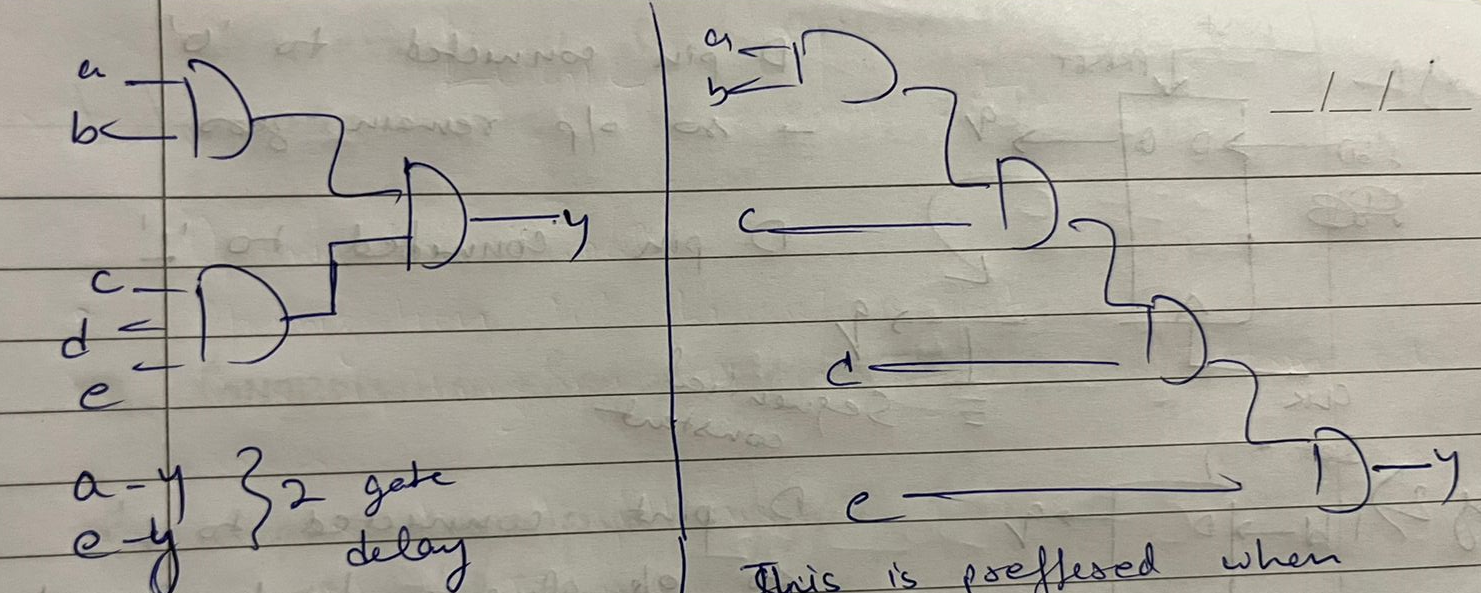 a
b
y
c
d
e
a - y } 2 gate
e - y delay
a
b
c
d
e
y
This is preffered when
__/__/__